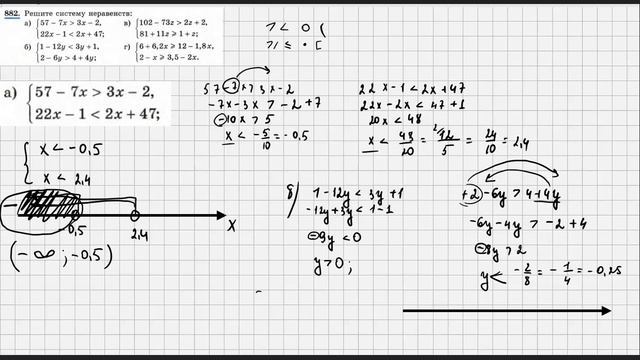 882. Решите систему неравенств:
а) {57 − 7x > 3x − 2,
22x − 1 < 2x + 47;
в) {102 − 73z > 2z + 2,
81 + 11z ⩾ 1 + z;
б) {1 − 12y < 3y + 1,
2 − 6y > 4 + 4y;
г) {6 + 6,2x ⩾ 12 − 1,8x,
2 − x ⩾ 3,5 − 2x.
> < 0 (
⩾ ⩽ • [
а) {57 − 7x > 3x − 2,
22x − 1 < 2x + 47;
{x < −0,5
x < 2,4
−0,5
2,4
x
(−∞; −0,5)
−7x − 3x > −2 + 7
−10x > 5
x < −5/10 = −0,5
22x − 1 < 2x + 47
22x − 2x < 47 + 1
20x < 48
x < 48/20 = 12/5 = 24/10 = 2,4
б) 1 − 12y < 3y + 1
−12y + 3y < 1 − 1
−9y < 0
y > 0;
+2 − 6y > 4 + 4y
−6y − 4y > −2 + 4
−8y > 2
y < −2/8 = −1/4 = −0,25